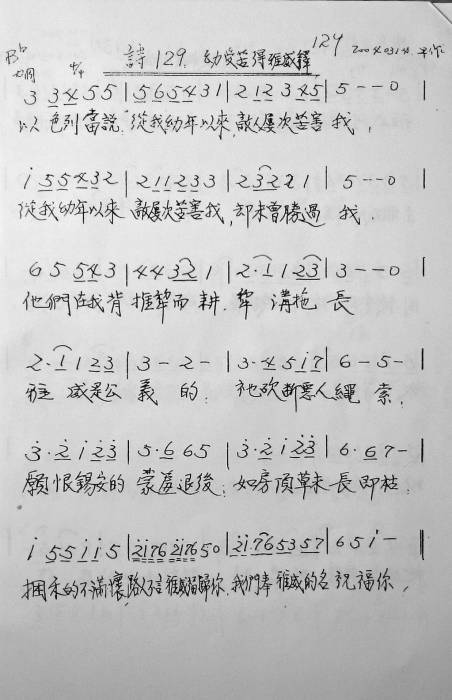 129
B♭ 4/4 詩129. 幼受苦得雅威釋
3 34 55 | 5654 31 | 212 345 | 5 - - 0 |
以色列當說: 從我幼年以來, 敵屢次苦害我,
i 55432 | 211233 | 23221 | 5 - - 0 |
從我幼年以來 敵屢次苦害我, 却未曾勝過我.
65 54 3 | 44 32 1 | 2·1 1 23 | 3 - - 0 |
他們在我背推犂而耕. 犂溝拖長
2·1 1 23 | 3 - 2 - | 3·4 5 i7 | 6 - 5 - |
雅威是公義的: 祂砍斷惡人繩索.
3·2 i 23 | 5·6 65 | 3·2 i 23 | 6·67 - |
願恨錫安的蒙羞退後: 如房頂草未長即枯:
i 55 ii 5 | 2i76 2i76 50 | 2i·765357 | 65 i - ‖
捆禾的不滿懷, 路人不言雅威福歸你. 我們奉雅威的名祝福你,